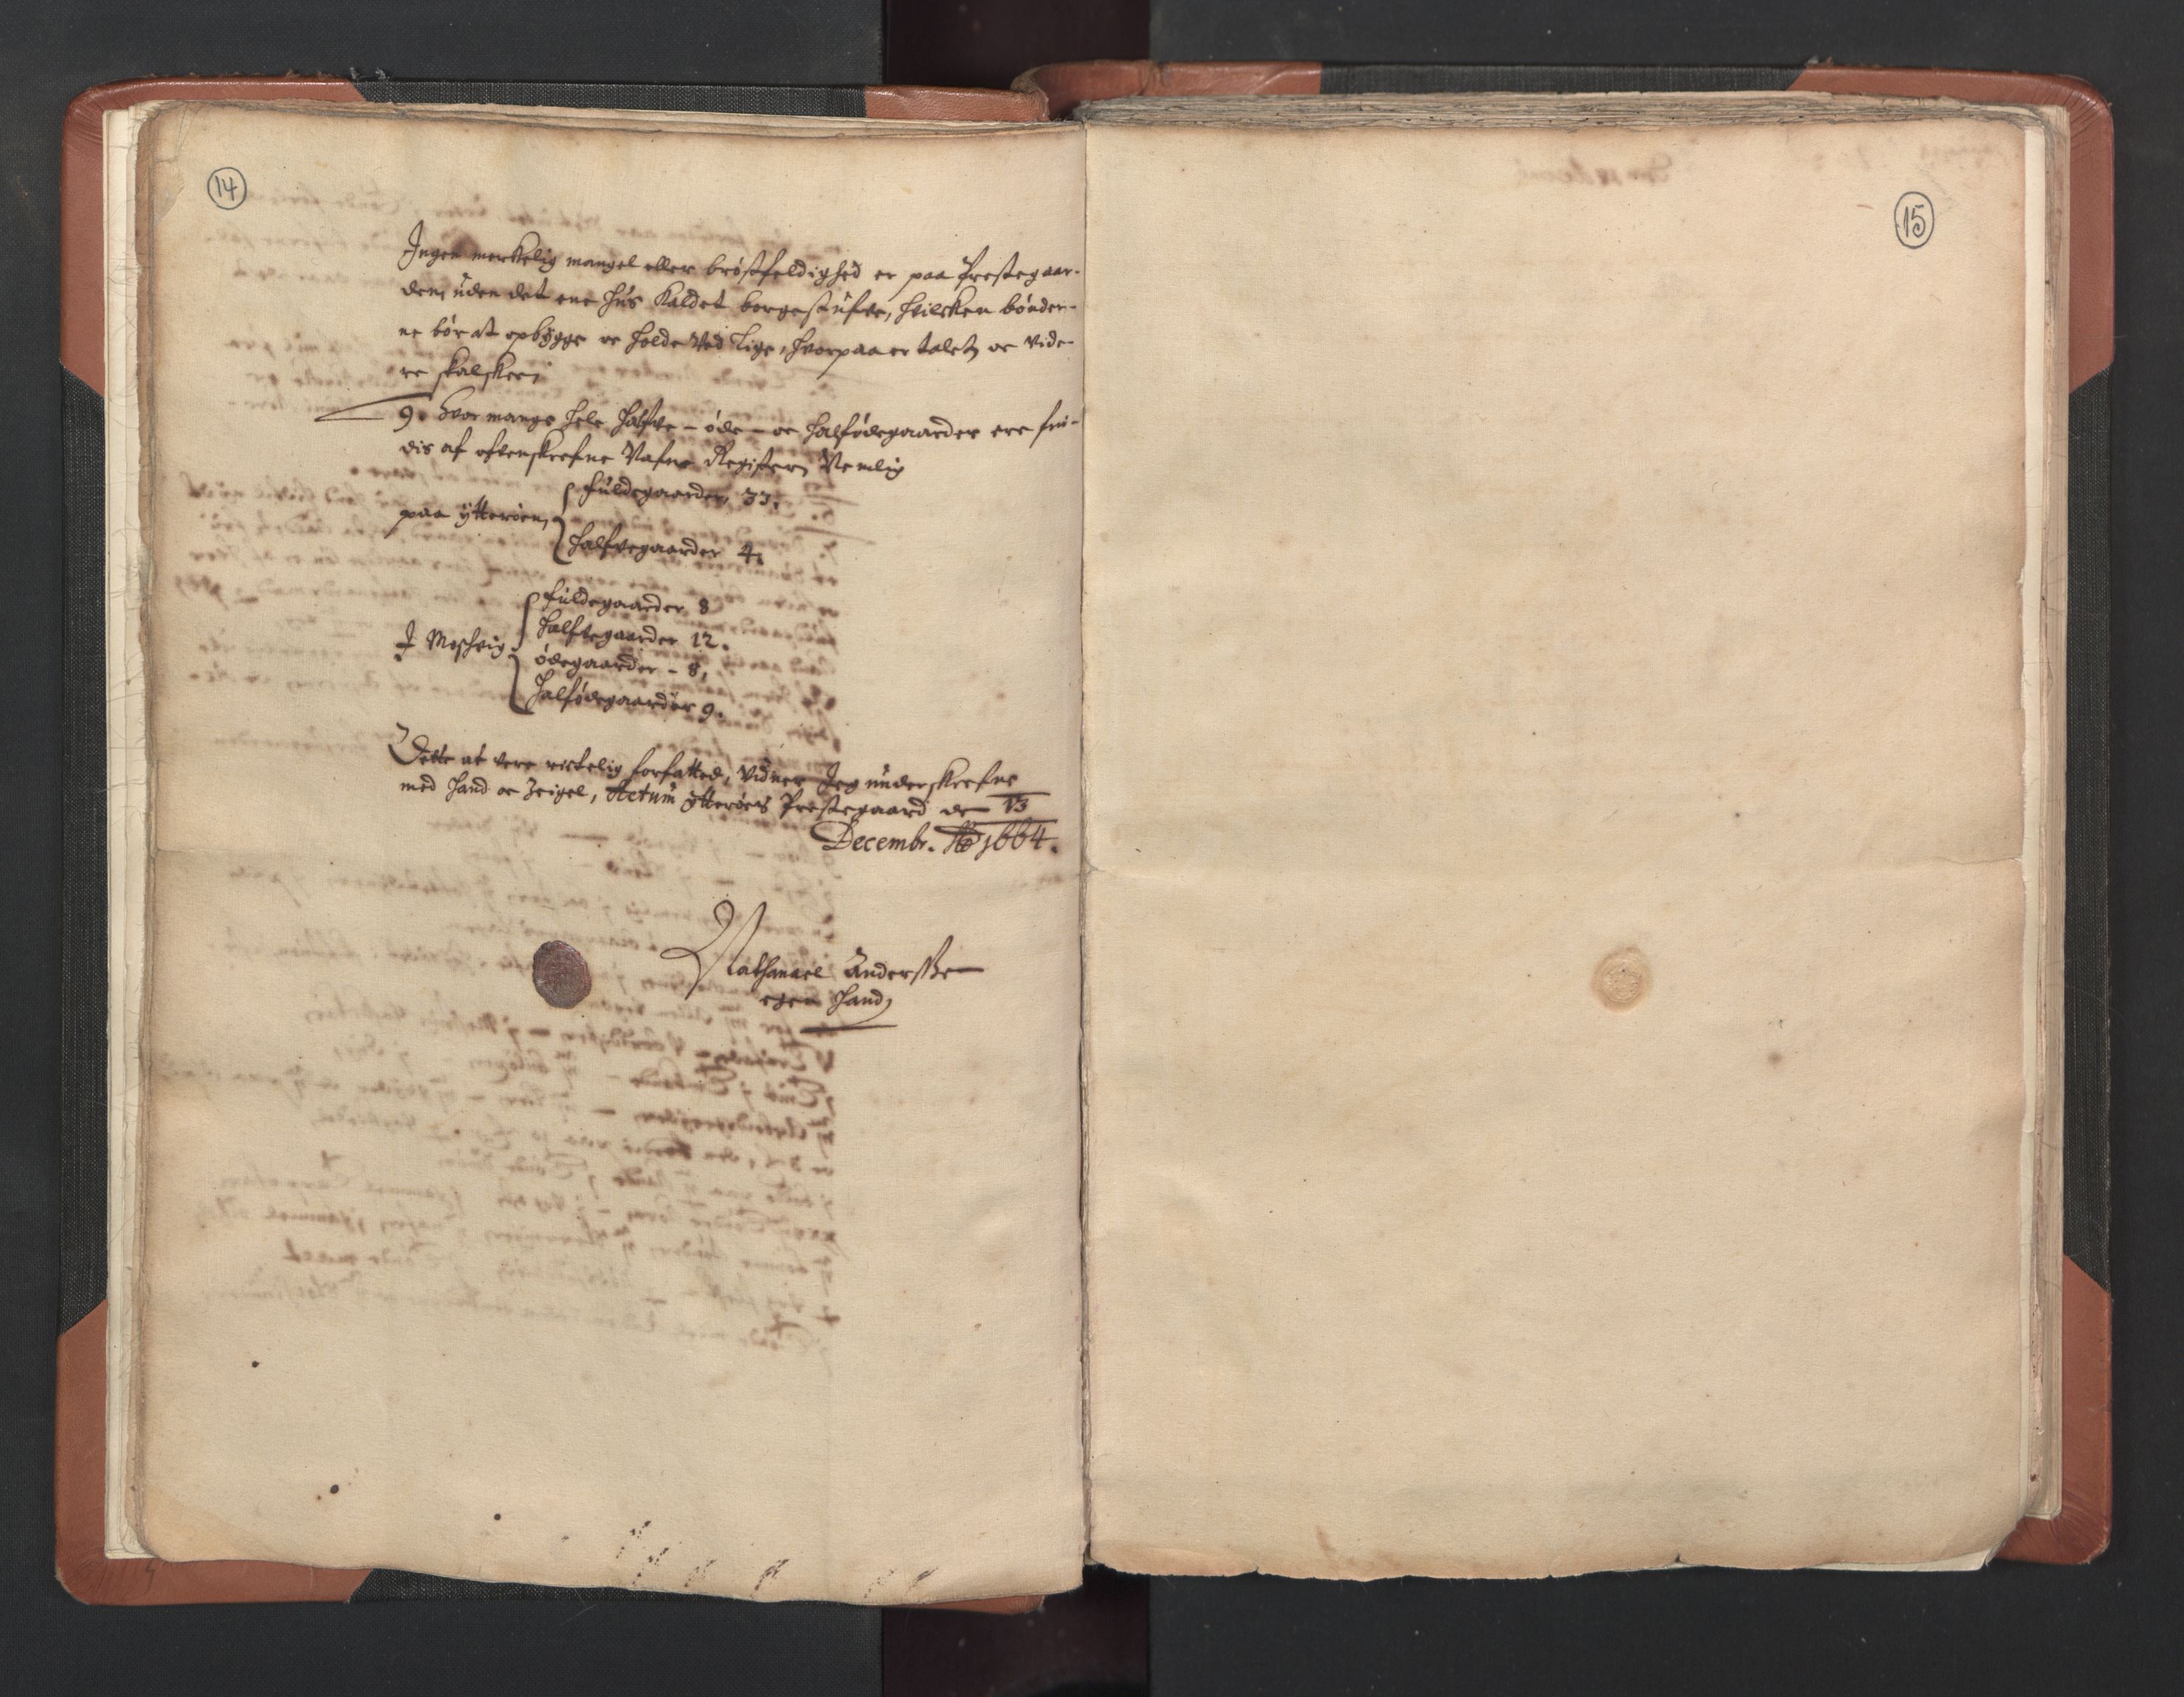 14
Ingen merkelig mangel eller bröstfeldighed er paa Prestegaar-
den, uden det ene huus kaldet borgestufue, huilcken bönder-
ne bör at opbygge oc holde ved lige, hvorpaa er talet, oc vide-
re skal skee,
9. Hvor mange hele halfve - öde - oc halfödegaarder ere fin-
dis af ofvenskrefne Nafne Register, Nemlig
paa Ytteröen,
fuldegaarder, 33.
halfvegaarder 4.
J Moschvig
fuldegaarder 8
halfvegaarder 12.
ödegaarder - 8,
halfödegaarder 9.
Dette at vere rictelig forfatted, vidner Jeg underskrefne
med haand oc Zeigel, Actum Ytteröens Prestegaard de 13
Decembr. Ao 1664.
Nathanael Anderssen
egen haand
15